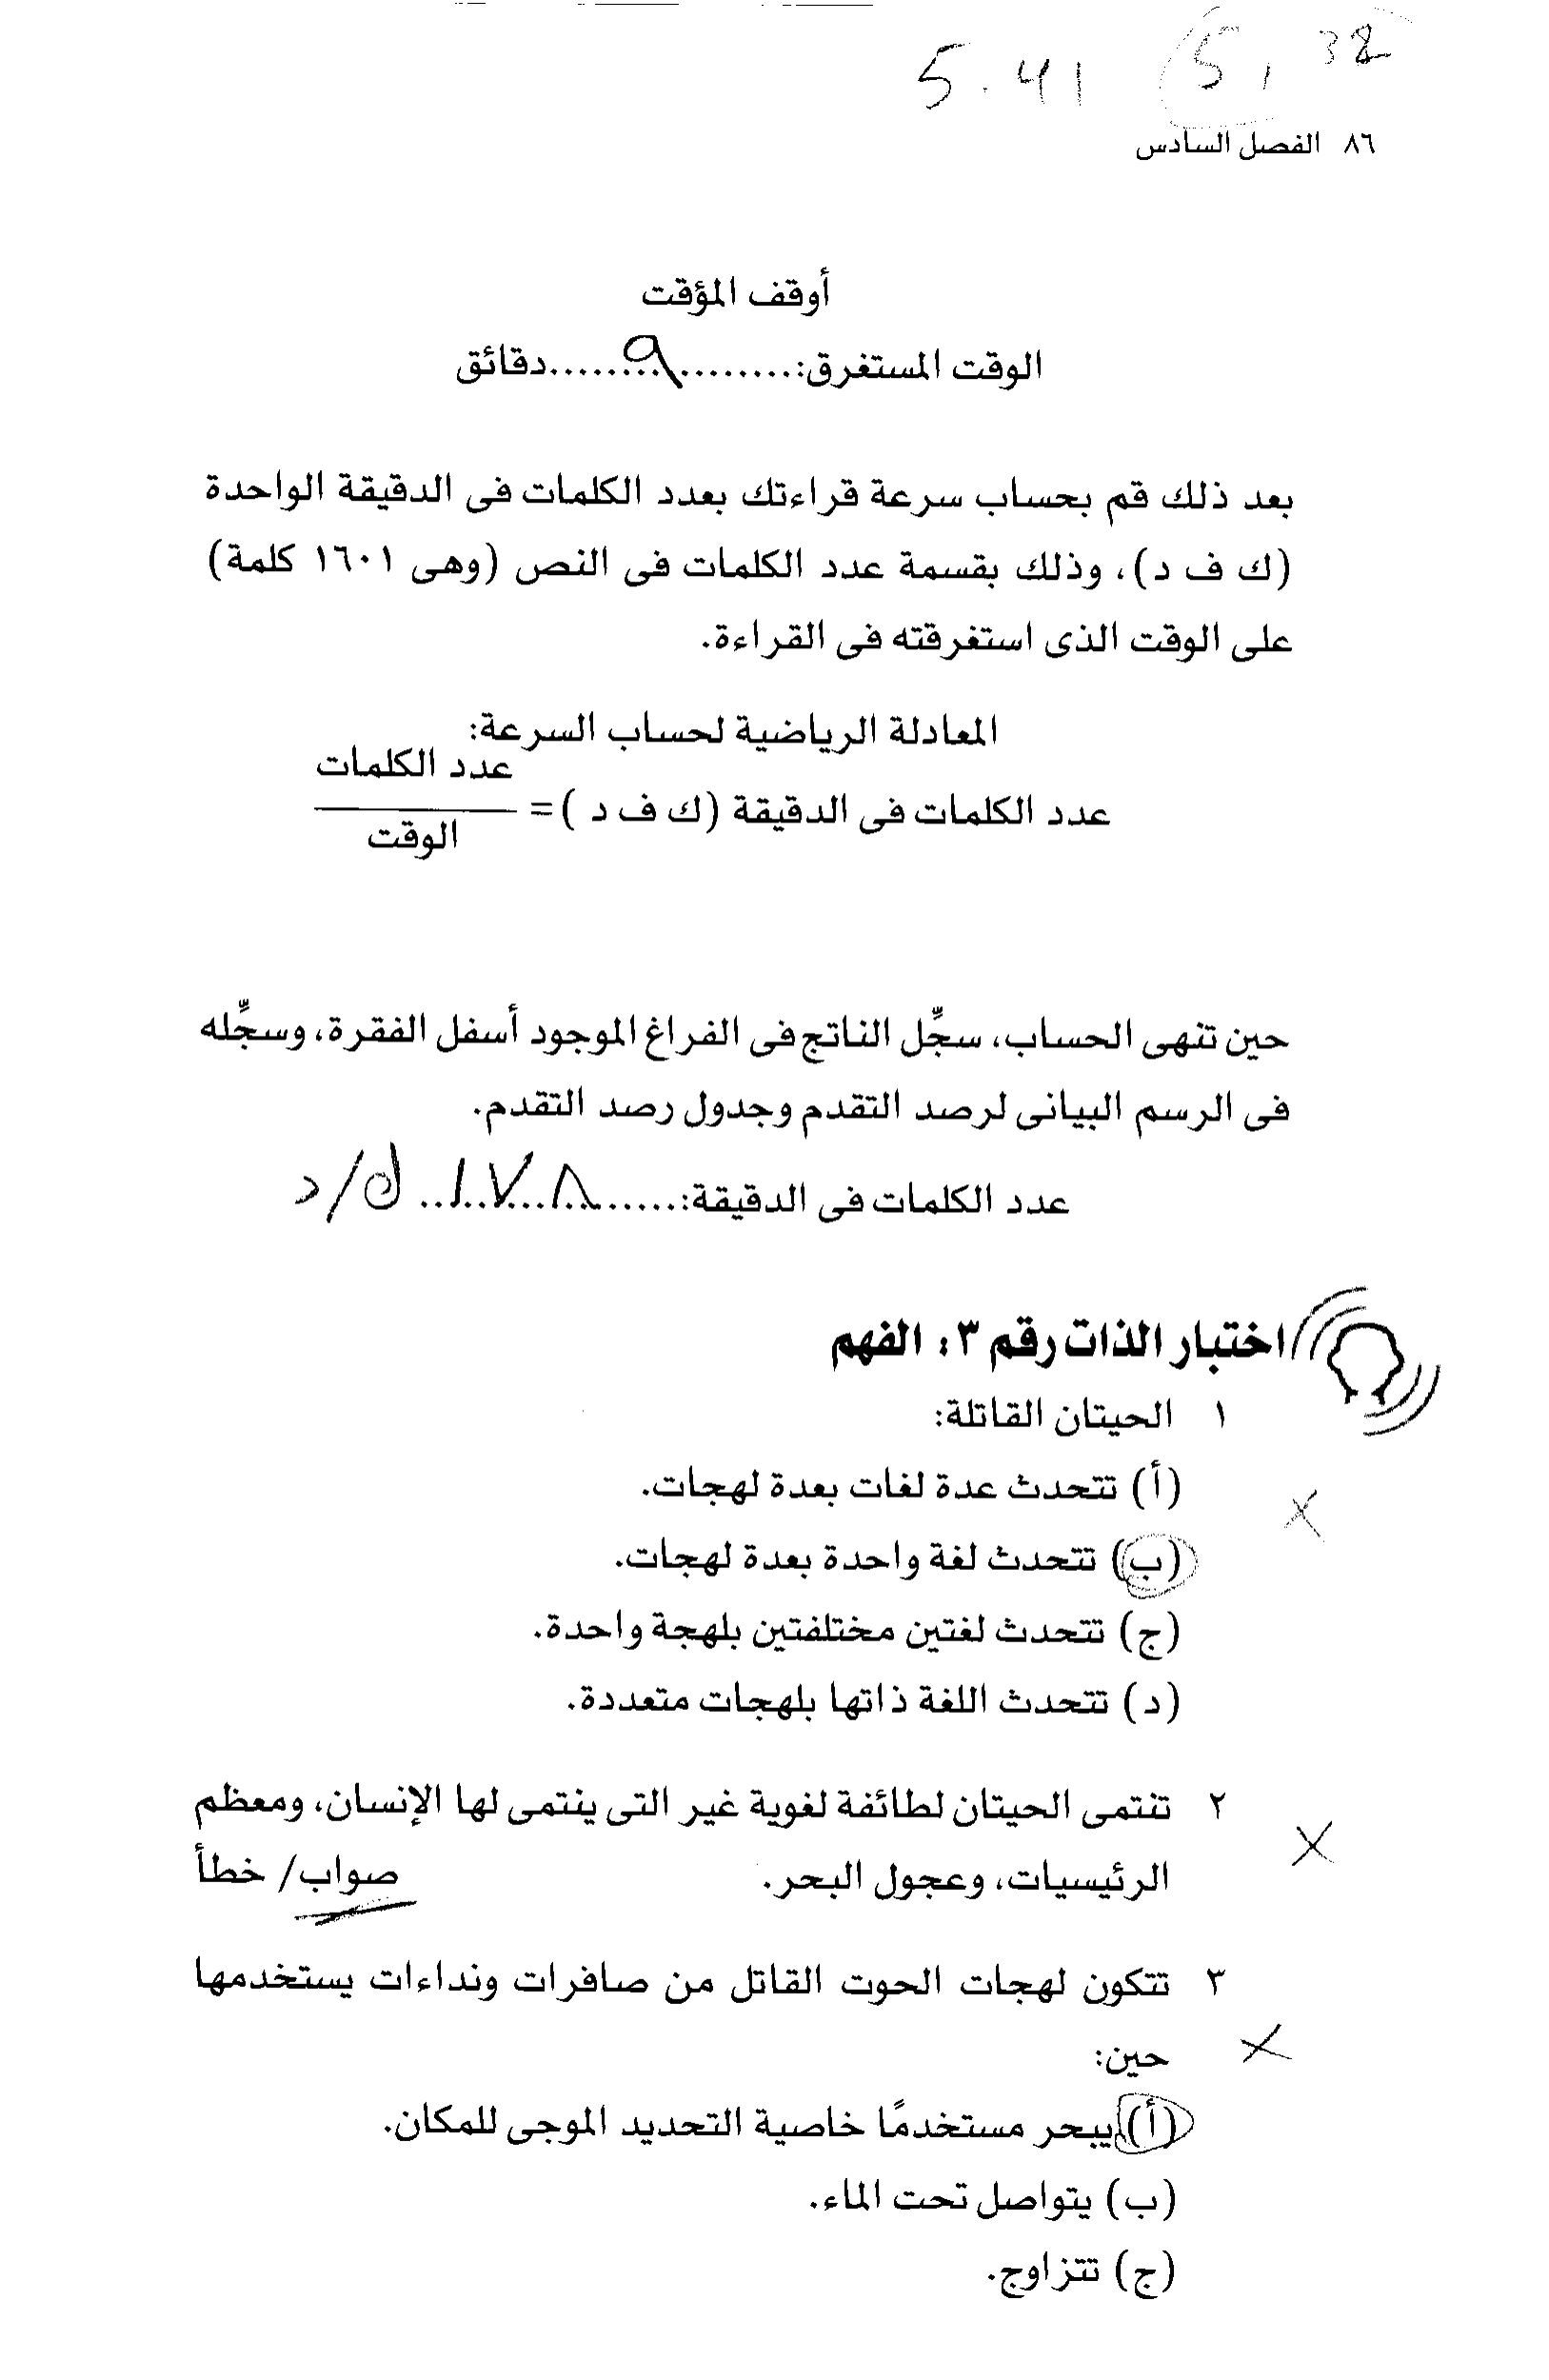 5.41 5,32
٨٦ الفصل السادس
أوقف المؤقت
الوقت المستغرق:.........٩.......دقائق
بعد ذلك قم بحساب سرعة قراءتك بعدد الكلمات فى الدقيقة الواحدة
(ك ف د)، وذلك بقسمة عدد الكلمات فى النص (وهى ١٦٠١ كلمة)
على الوقت الذى استغرقته فى القراءة.
المعادلة الرياضية لحساب السرعة:
عدد الكلمات
عدد الكلمات فى الدقيقة (ك ف د )=
الوقت
حين تنهى الحساب، سجِّل الناتج فى الفراغ الموجود أسفل الفقرة، وسجِّله
فى الرسم البيانى لرصد التقدم وجدول رصد التقدم.
عدد الكلمات فى الدقيقة:.......١٧٨.. ك/د
اختبار الذات رقم ٣: الفهم
١ الحيتان القاتلة:
(أ) تتحدث عدة لغات بعدة لهجات.
(ب) تتحدث لغة واحدة بعدة لهجات.
(ج) تتحدث لغتين مختلفتين بلهجة واحدة.
(د) تتحدث اللغة ذاتها بلهجات متعددة.
٢ تنتمى الحيتان لطائفة لغوية غير التى ينتمى لها الإنسان، ومعظم
الرئيسيات، وعجول البحر. صواب/ خطأ
٣ تتكون لهجات الحوت القاتل من صافرات ونداءات يستخدمها
حين:
(أ) يبحر مستخدمًا خاصية التحديد الموجى للمكان.
(ب) يتواصل تحت الماء.
(ج) تتزاوج.